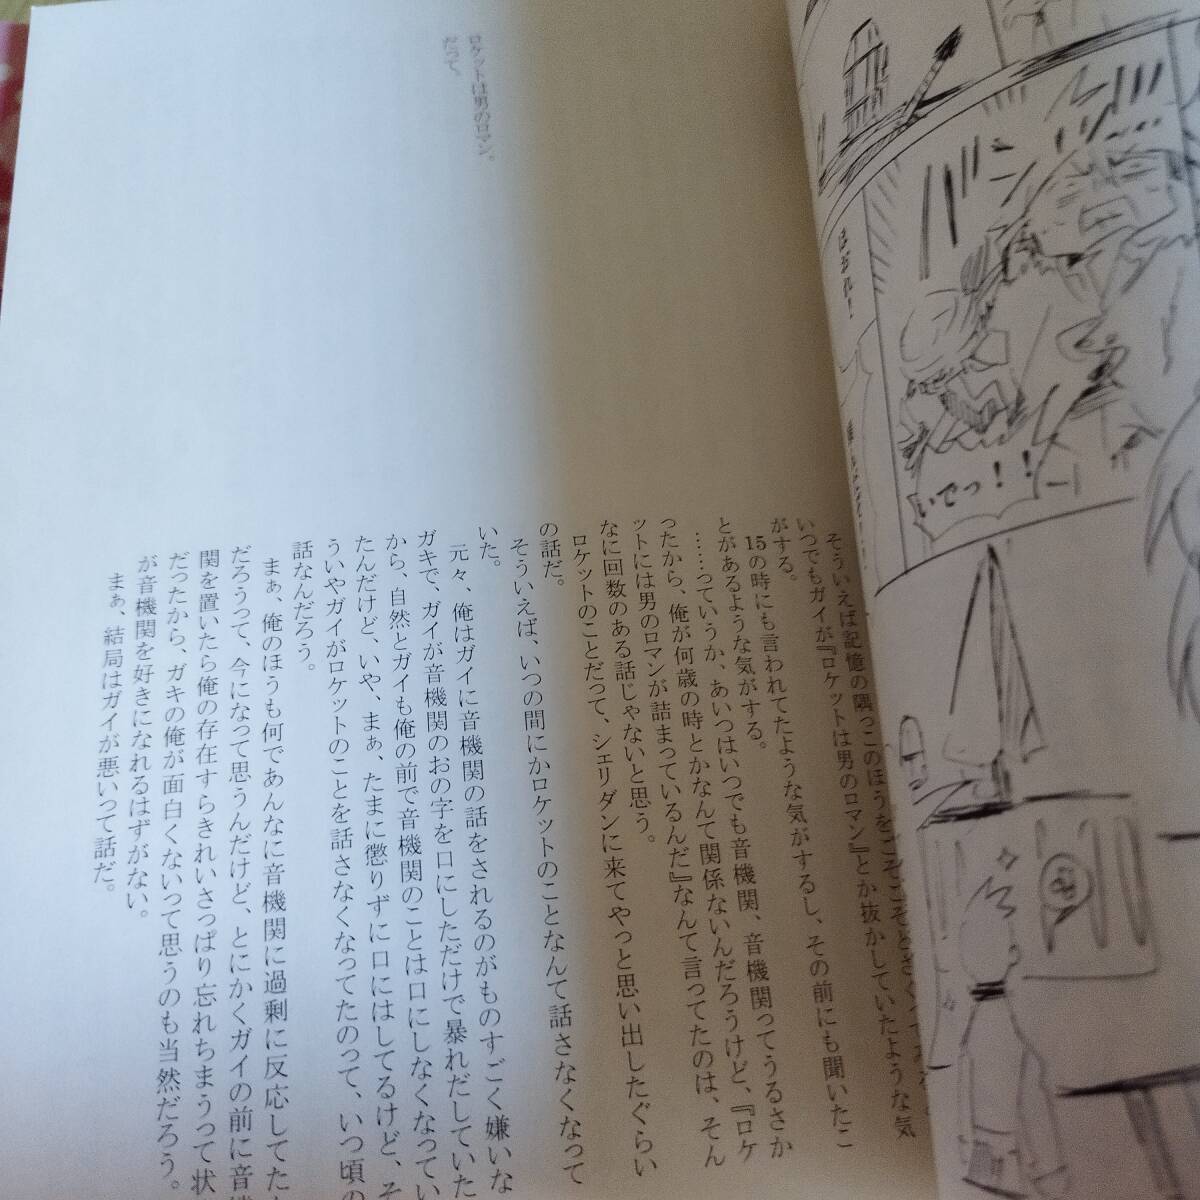 ロケットは男のロマン。
だって、
そういえば記憶の隅っこのほうをこそこそとさ
いつでもガイが『ロケットは男のロマン』とか抜かしていたような気
がする。
15の時にも言われてたような気がするし、その前にも聞いたこ
とがあるような気がする。
……っていうか、あいつはいつでも音機関、音機関ってうるさか
ったから、俺が何歳の時とかなんて関係ないんだろうけど、『ロケ
ットには男のロマンが詰まっているんだ』なんて言ってたのは、そん
なに回数のある話じゃないと思う。
ロケットのことだって、シェリダンに来てやっと思い出したぐらい
の話だ。
そういえば、いつの間にかロケットのことなんて話さなくなって
いた。
元々、俺はガイに音機関の話をされるのがものすごく嫌いな
ガキで、ガイが音機関のおの字を口にしただけで暴れだしていた
から、自然とガイも俺の前で音機関のことは口にしなくなってい
たんだけど、いや、まぁ、たまに懲りずに口にはしてるけど、そ
ういやガイがロケットのことを話さなくなってたのって、いつ頃の
話なんだろう。
まぁ、俺のほうも何であんなに音機関に過剰に反応してた
だろうって、今になって思うんだけど、とにかくガイの前に音機
関を置いたら俺の存在すらきれいさっぱり忘れちまうって状
だったから、ガキの俺が面白くないって思うのも当然だろう。
が音機関を好きになれるはずがない。
まぁ、結局はガイが悪いって話だ。
バン
ほぎれ！
いでっ！！